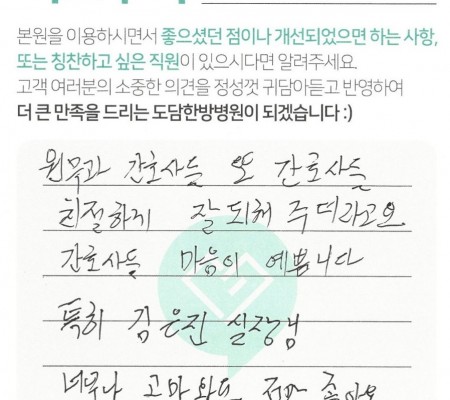 본원을 이용하시면서 좋으셨던 점이나 개선되었으면 하는 사항,
또는 칭찬하고 싶은 직원이 있으시다면 알려주세요.
고객 여러분의 소중한 의견을 정성껏 귀담아듣고 반영하여
더 큰 만족을 드리는 도담한방병원이 되겠습니다 :)
원무과 간호사들 또 간호사들
친절하게 잘 되해 주더라고요
간호사들 마음이 예쁩니다
특히 김은진 실장님
너무나 고마와도 좋아요